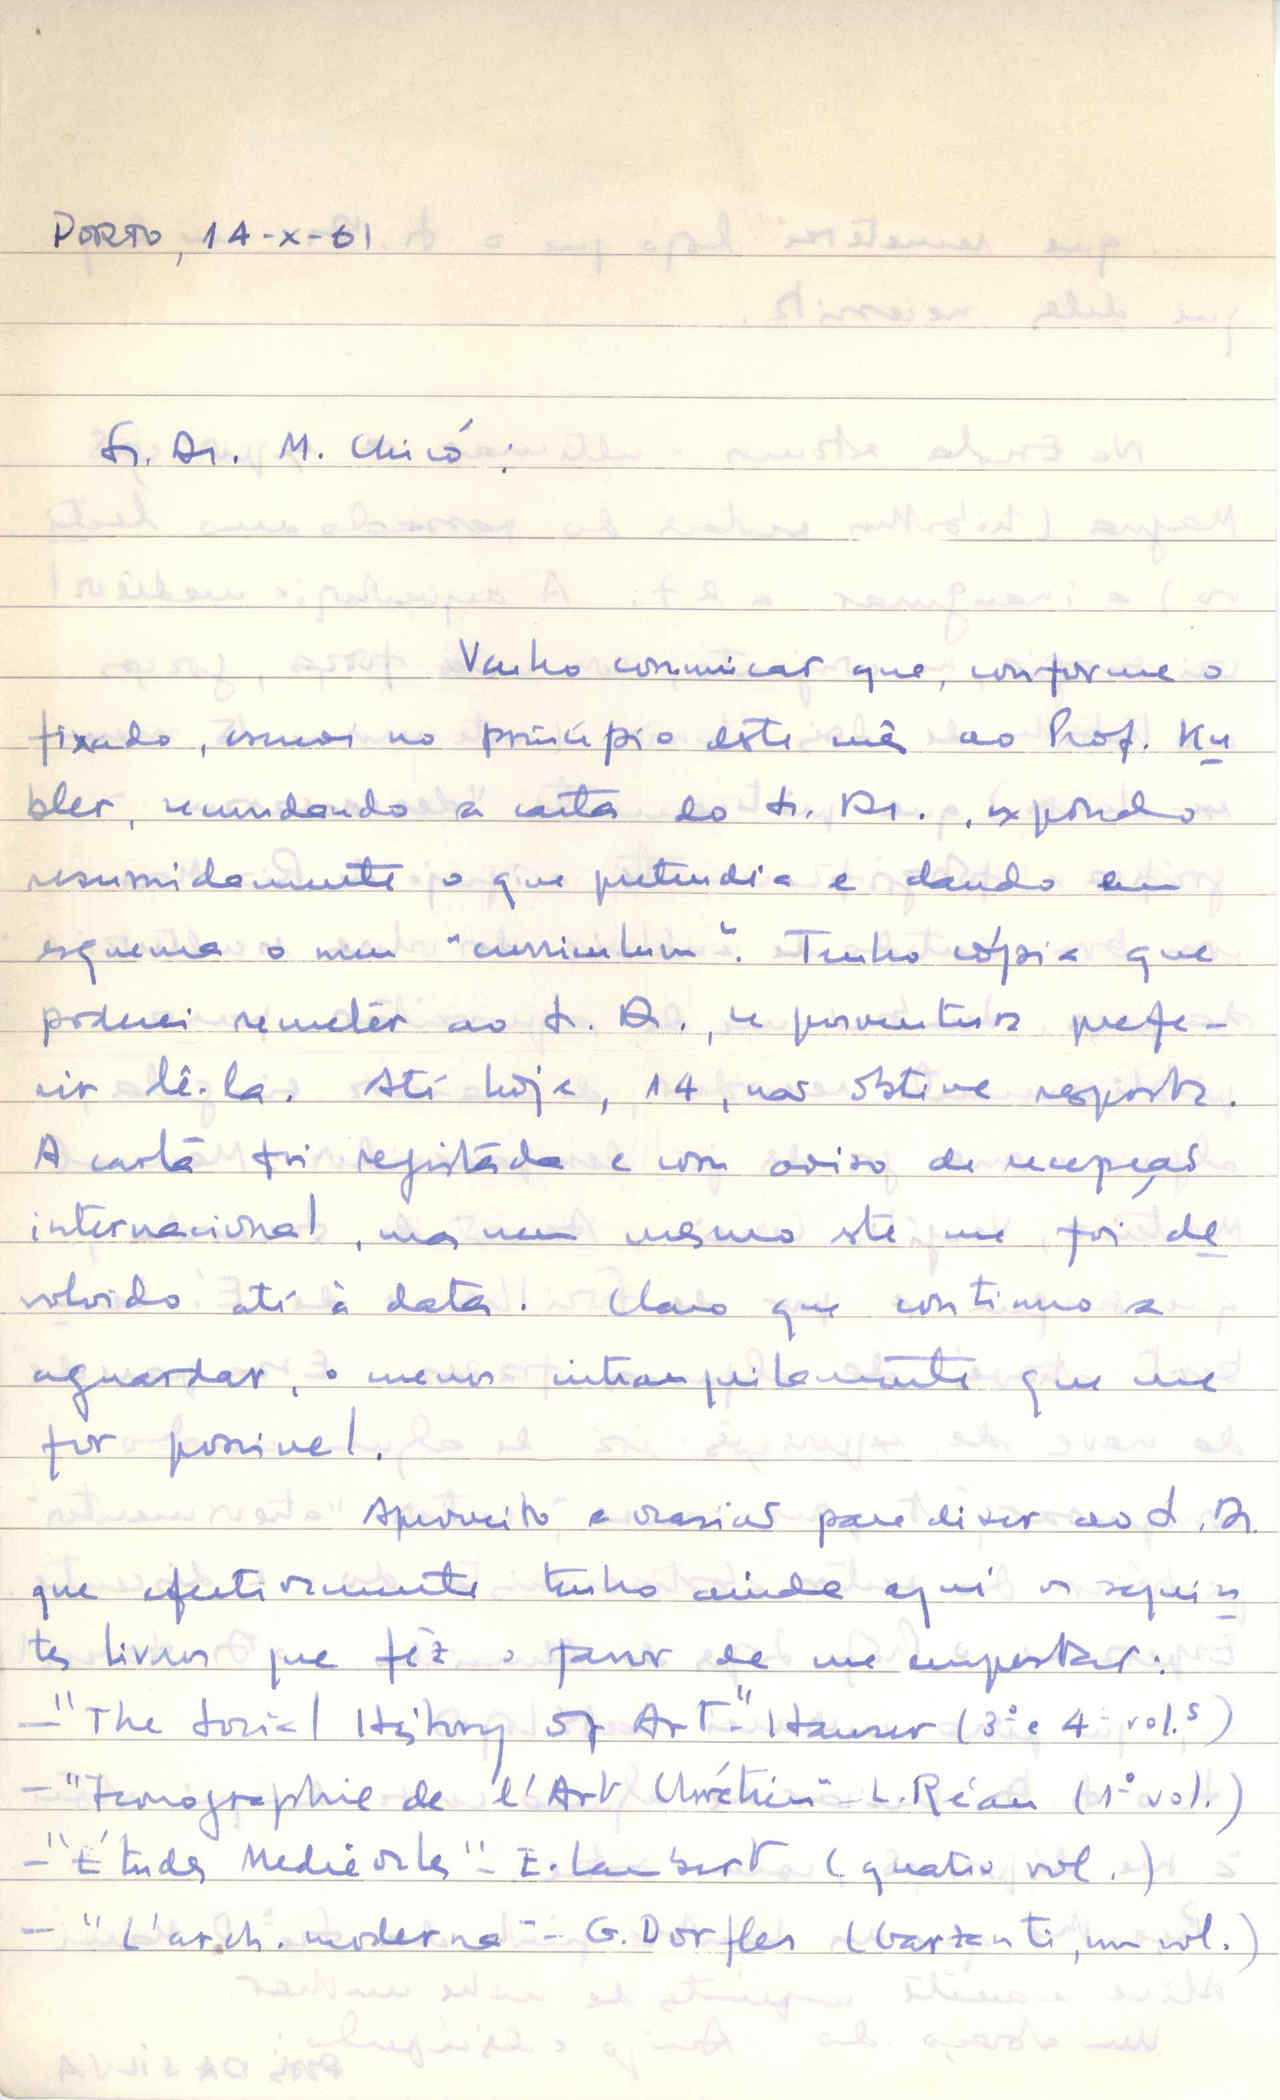 Porto, 14-X-61
Sr. Dr. M. Chicó:
Venho comunicar que, conforme o
fixado, escrevi no princípio deste mês ao Prof. Ku
bler, secundando a carta do Sr. Dr., expondo
resumidamente o que pretendia e dando em
esquema o meu "curriculum". Tenho cópia que
poderei remeter ao Sr. Dr., se porventura prefe-
rir lê-la. Até hoje, 14, não obtive resposta.
A carta foi registada e com aviso de recepção
internacional, mas nem mesmo este me foi de
volvido até à data. Claro que continuo a
aguardar, o menos intranquilamente que me
for possível.
Aproveito a ocasião para dizer ao S. Dr.
que efectivamente tenho ainda aqui os seguin
tes livros que fêz o favor de me emprestar:
- "The Social History of Art" - Hauser (3º e 4º vol.s)
- "Iconographie de l'Art Chrétien" - L. Réau (1º vol.)
- "Études Médiévales" - E. Lambert (quatro vol.)
- "L'arch. moderna" - G. Dorfles (Garzanti, um vol.)